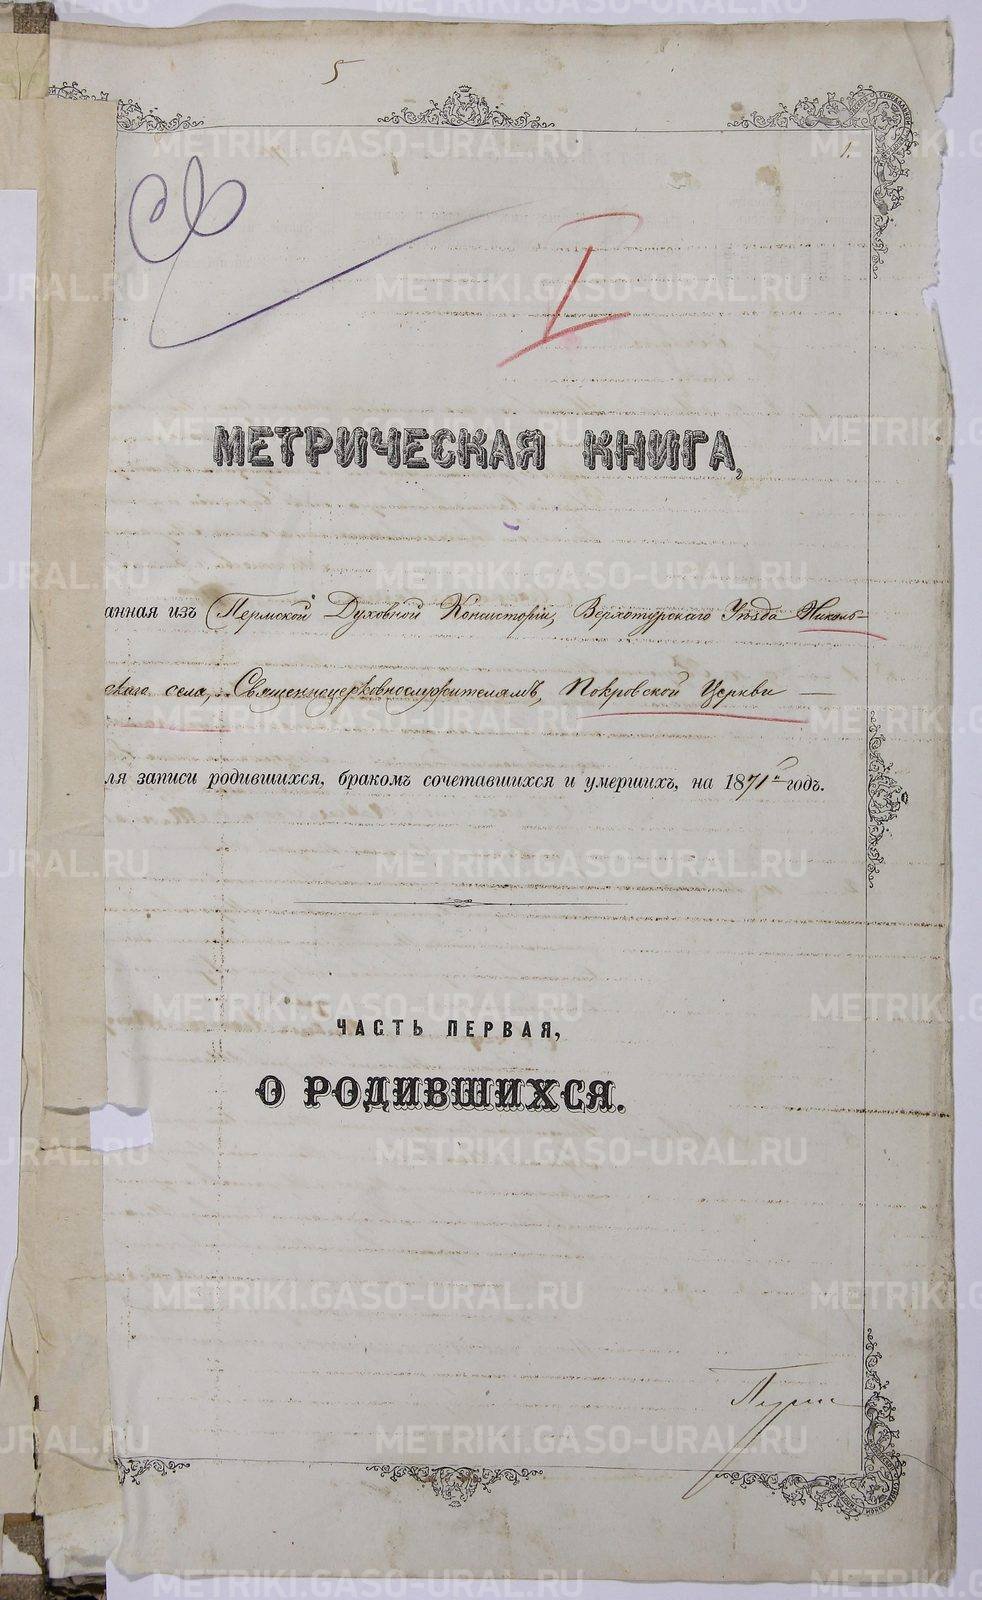 5
1.
I
МЕТРИЧЕСКАЯ КНИГА,
анная изъ Пермской Духовной Консисторіи, Верхотурскаго Уѣзда Николь-
скаго села, Священноцерковнослужителямъ, Покровской Церкви —
ля записи родившихся, бракомъ сочетавшихся и умершихъ, на 1871й годъ.
ЧАСТЬ ПЕРВАЯ,
О РОДИВШИХСЯ.
METRIKI.GASO-URAL.RU